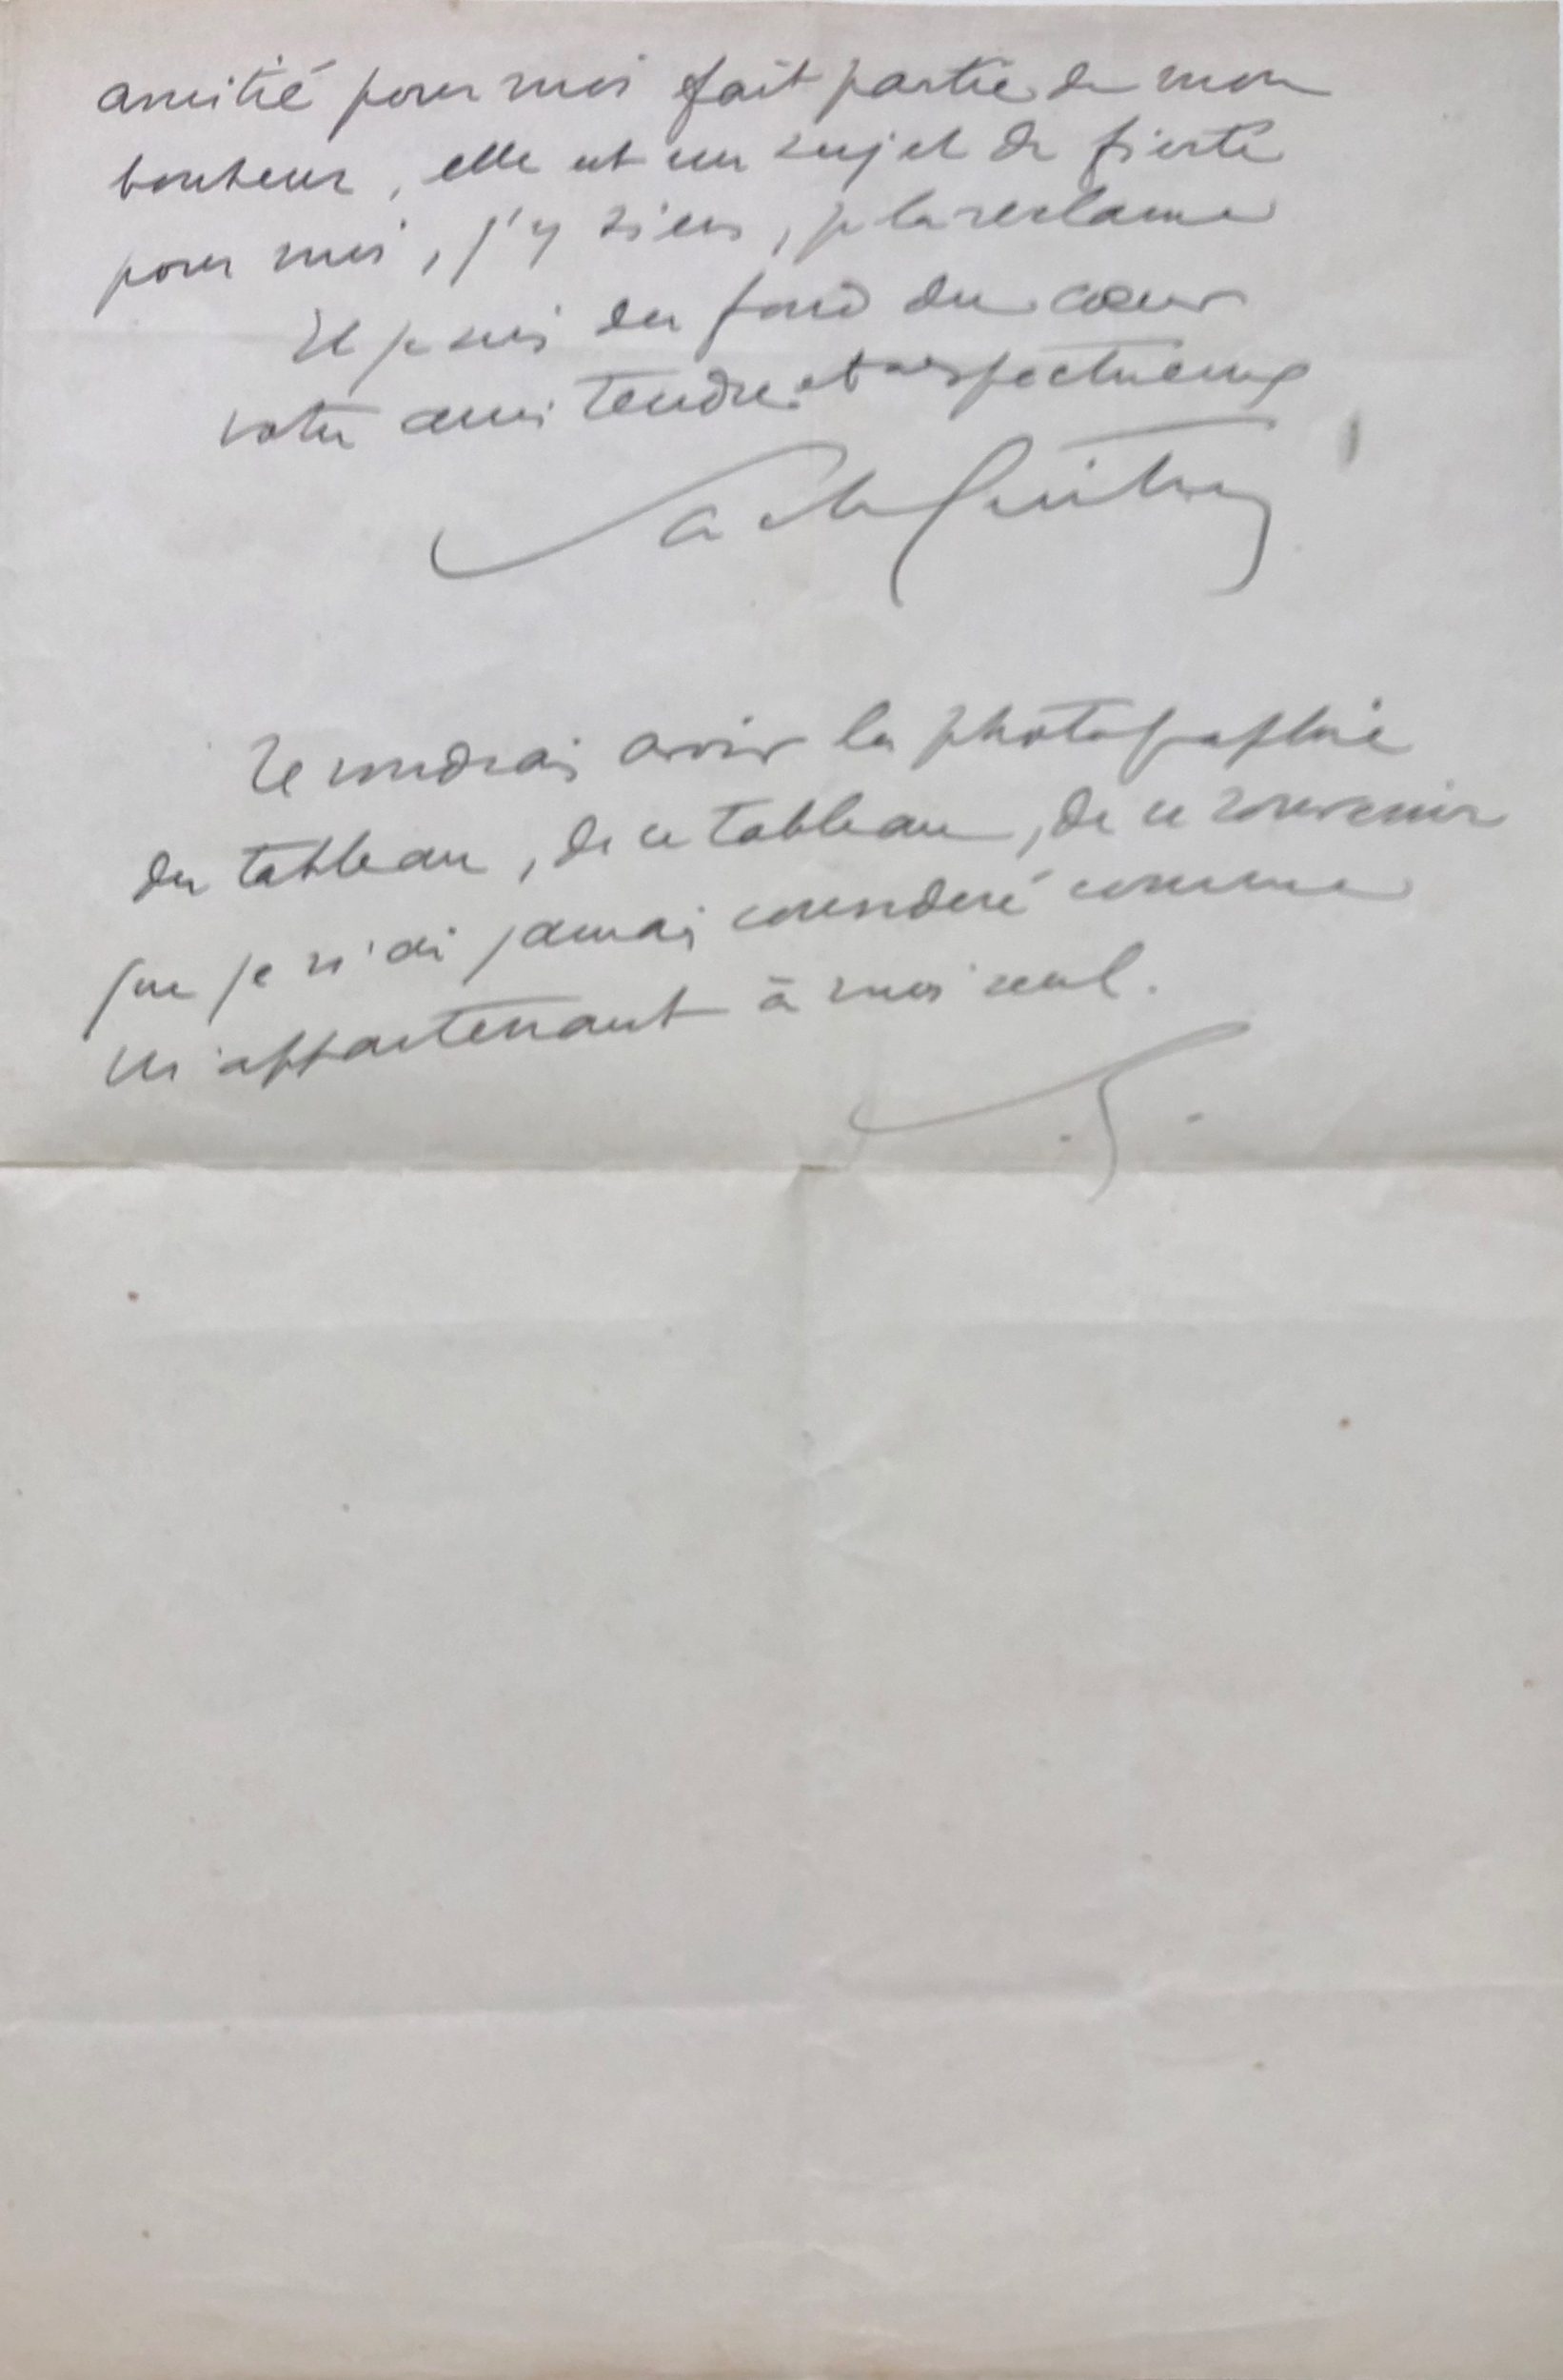 amitié pour moi fait partie de mon
bonheur, elle est un sujet de fierté
pour moi, j'y tiens, je la réclame
Et je suis du fond du cœur
votre ami tendre et respectueux
Sacha Guitry
Je voudrais avoir la photographie
du tableau, de ce tableau, de ce souvenir
que je n'ai jamais considéré comme
m'appartenant à moi seul.
S.G.